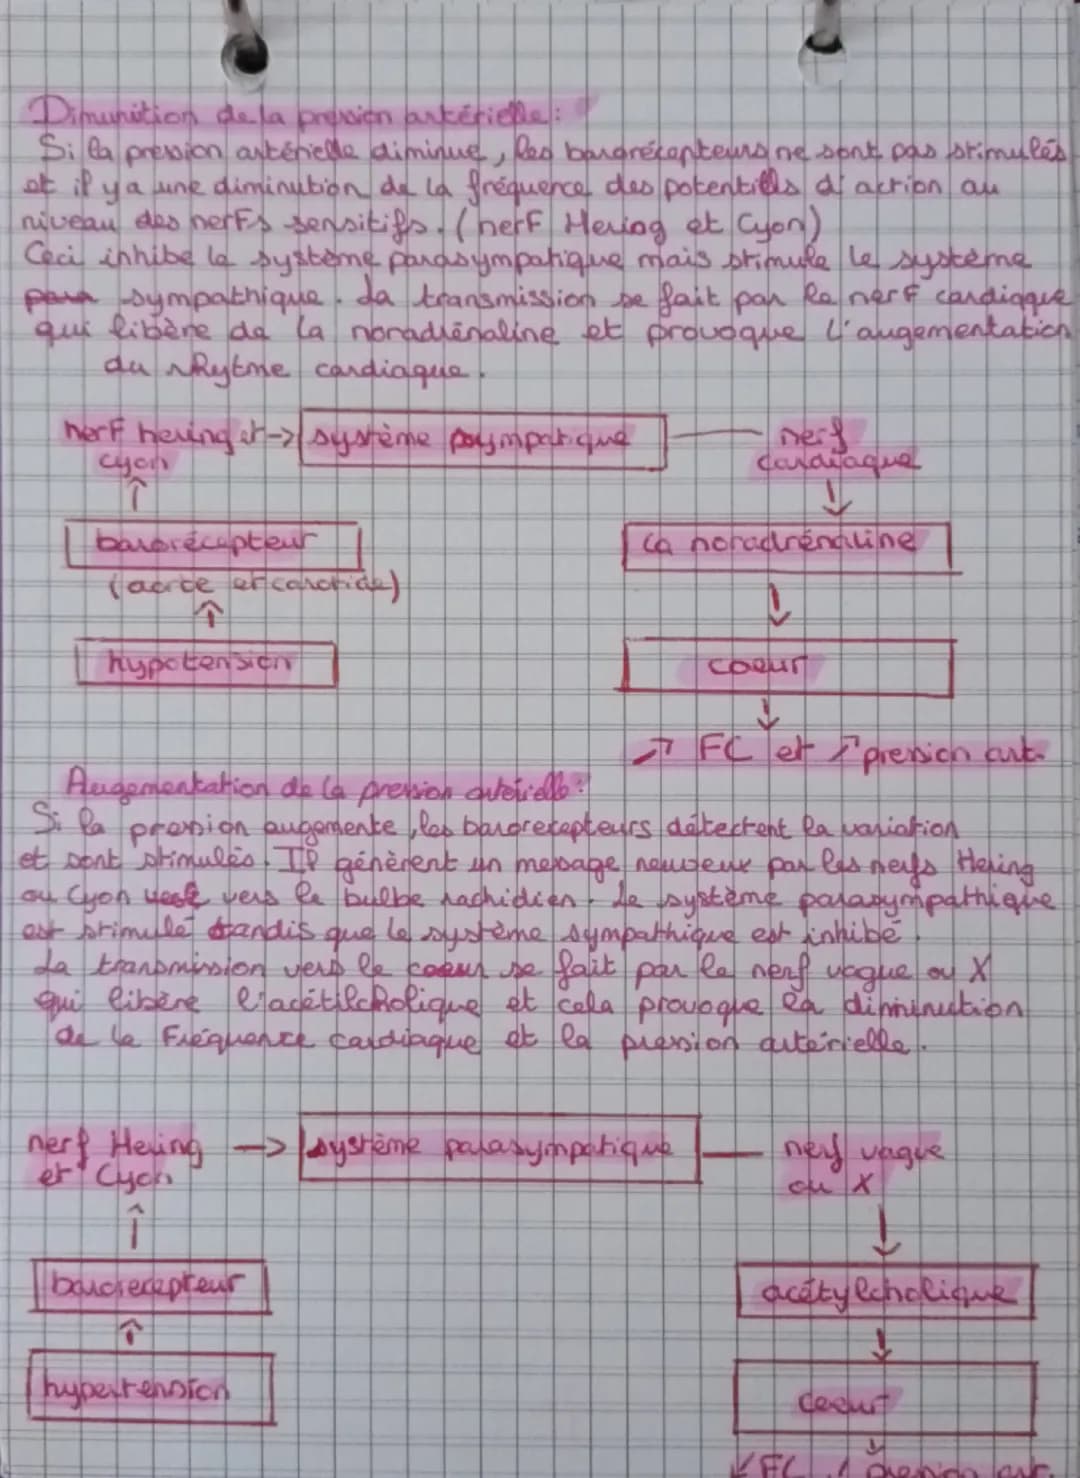 Dimunition de la pression artérielle :
Si la pression artérielle diminue, les barorécepteurs ne sont pas stimulés
et il y a une diminution de la fréquence des potentiels d'action au
niveau des nerfs sensitifs. (nerf Hering et Cyon)
Ceci inhibe le système parasympatique mais stimule le système
sympathique. La transmission se fait par le nerf cardiaque
qui libère de la noradrénaline et provoque l'augementation
du Rytme cardiaque.
nerf hering et -> système sympatique
nerf
cyon
cardiaque
barorécepteur
la noradrénaline
(aorte et carotide)
hypotension
coeur
↗ FC et ↗ pression art.
Augementation de la pression artérielle :
Si la pression augemente, les barorecepteurs détectent la variation
et sont stimulés. Il génèrent un message nerveux par les nerfs Hering
ou Cyon vers le bulbe rachidien. Le système parasympathique
est stimulé tandis que le système sympathique est inhibé.
La transmission vers le coeur se fait par le nerf vague ou X
qui libère l'acétilcholique et cela provoque la diminution
de la Fréquence cardiaque et la pression artérielle.
nerf Hering -> système parasympatique
nerf vague
et Cyon
ou X
barorecepteur
acétylcholique
hypertension
coeur
↙ FC
pression art.